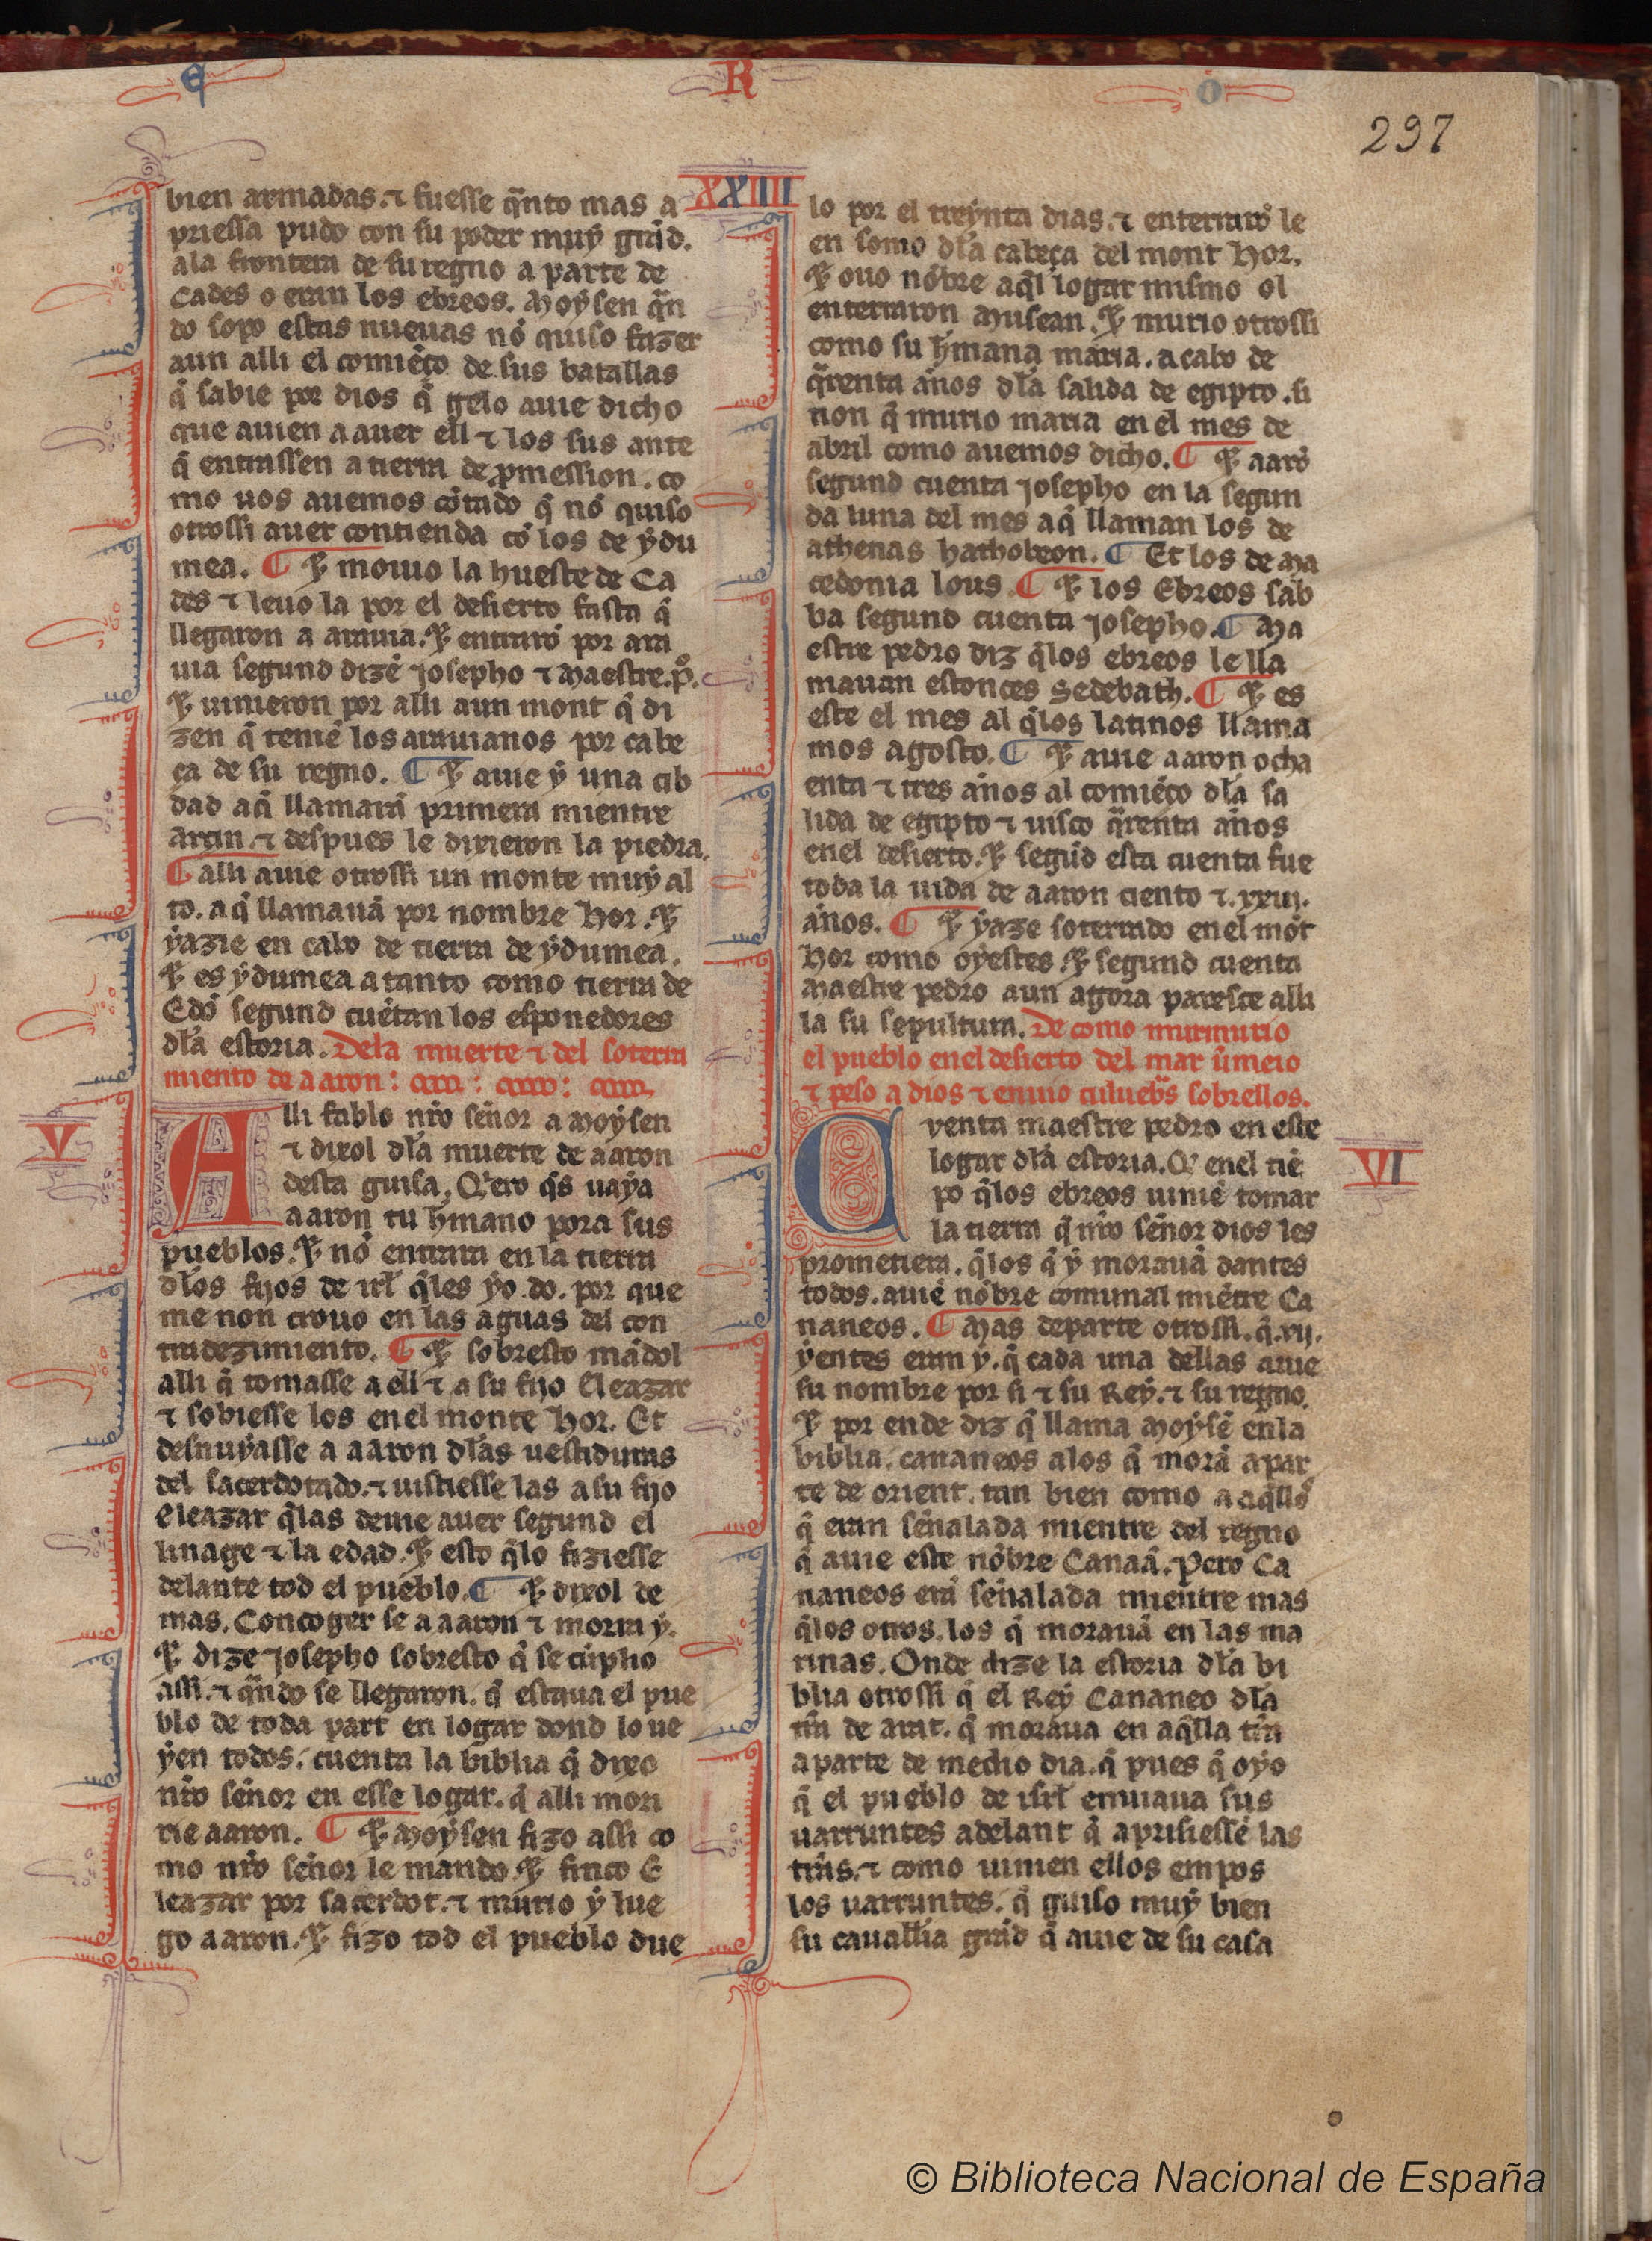 E R O
297
XXIIII
bien armadas. ⁊ fuesse q̃nto mas a
priessa pudo con su poder muẏ grãd.
ala frontera de su regno a parte de
Cades o eran los ebreos. Moẏsen q̃n
do sopo estas nueuas nõ quiso fazer
aun alli el comiẽço de sus batallas
q̃ sabie por dios q̃ gelo auie dicho
que auien a auer ell ⁊ los sus ante
q̃ entrassen a tierra de ꝓmession. co
mo uos auemos cõtado q̃ nõ quiso
otrossi auer contienda cõ los de ẏdu
mea. ¶ Et mouio la hueste de Ca
des ⁊ leuo la por el desierto fasta q̃
llegaron a arauia. Et entrarõ por ara
uia segund dizẽ Josepho ⁊ Maestre .pº.
Et uinieron por alli a un mont q̃ di
zen q̃ teniẽ los arauianos por cabe
ça de su regno. ¶ Et auie ẏ una cib
dad a q̃ llamarã primera mientre
aran. ⁊ despues le dixieron la piedra.
¶ alli auie otrossi un monte muẏ al
to. a q̃ llamauã por nombre Hor. Et
ẏazie en cabo de tierra de ẏdumea.
Et es ẏdumea a tanto como tierra de
Edõ segund cuẽtan los esponedores
dl̃a estoria. Dela muerte ⁊ del soterra
miento de aaron:
V
Alli fablo nr̃o señor a Moẏsen
⁊ dixol dl̃a muerte de aaron
desta guisa. Qĩero q̃s uaẏa
aaron tu hr̃mano pora sus
pueblos. Et nõ entrara en la tierra
dl̃os fijos de irl̃ q̃les ẏo do. por que
me non crouo en las aguas del con
tradezimiento. ¶ Et sobresto mãdol
alli q̃ tomasse a ell ⁊ a su fijo Eleazar
⁊ sobiesse los en el monte Hor. Et
desnuẏasse a aaron dl̃as uestiduras
del sacerdotado. ⁊ uistiesse las a su fijo
Eleazar q̃las deuie auer segund el
linage ⁊ la edad. Et esto q̃lo fiziesse
delante tod el pueblo. ¶ Et dixol de
mas. Concoger se a aaron ⁊ morra ẏ.
Et dize Josepho sobresto q̃ se cũplio
assi. ⁊ q̃ndo se llegaron. q̃ estaua el pue
blo de toda part en logar dond lo ue
ẏen todos. cuenta la biblia q̃ dixo
nr̃o señor en esse logar. q̃ alli mori
rie aaron. ¶ Et Moẏsen fizo assi co
mo nr̃o señor le mando. Et finco E
leazar por sacerdot. ⁊ murio ẏ lue
go aaron. Et fizo tod el pueblo due
lo por el treẏnta dias. ⁊ enterrarõ le
en somo dl̃a cabeça del mont Hor.
Et ouo nõbre aq̃l logar mismo ol
enterraron Musean. Et murio otrossi
como su hr̃mana maria. a cabo de
q̃renta años dl̃a salida de egipto. si
non q̃ murio maria en el mes de
abril como auemos dicho. ¶ Et aarõ
segund cuenta Josepho en la segun
da luna del mes a q̃ llaman los de
athenas hathobeon. ¶ Et los de Ma
cedonia lous. ¶ Et los Ebreos sab
ba segund cuenta Josepho. ¶ Ma
estre pedro diz q̃los ebreos le lla
mauan estonces Sedebath. ¶ Et es
este el mes al q̃los latinos llama
mos agosto. ¶ Et auie aaron ocha
enta ⁊ tres años al comiẽço dl̃a sa
lida de egipto ⁊ uisco q̃renta años
en el desierto. Et segũd esta cuenta fue
toda la uida de aaron ciento ⁊ .xxiij.
años. ¶ Et ẏaze soterrado en el mõt
Hor como oẏestes. Et segund cuenta
Maestre pedro aun agora paresce alli
la su sepultura. De como murmurio
el pueblo en el desierto del mar ũmeio
⁊ peso a dios ⁊ enuio culueb̃s sobrellos.
VI
Cuenta maestre pedro en este
logar dl̃a estoria. Q̃ en el tiẽ
po q̃los ebreos uiniẽ tomar
la tierra q̃ nr̃o señor dios les
prometiera. q̃los q̃ ẏ morauã dantes
todos. auiẽ nõbre comunal miẽtre Ca
naneos. ¶ Mas departe otrossi. q̃ .xij.
ẏentes eran ẏ. q̃ cada una dellas auie
su nombre por si ⁊ su Reẏ. ⁊ su regno.
Et por ende diz q̃ llama Moẏsẽ en la
biblia. cananeos a los q̃ morã a par
te de orient. tan bien como a aq̃llõ
q̃ eran señalada mientre del regno
q̃ auie este nõbre Canaã. Pero Ca
naneos erã señalada mientre mas
q̃los otros. los q̃ morauã en las ma
rinas. Onde dize la estoria dl̃a bi
blia otrossi q̃ el Reẏ Cananeo dl̃a
tr̃ra de arat. q̃ moraua en aq̃lla tr̃ra
a parte de medio dia. q̃ pues q̃ oẏo
q̃ el pueblo de isrl̃ enuiaua sus
uarruntes adelant q̃ aprisiessẽ las
tr̃ras. ⁊ como uinien ellos empos
los uarruntes. q̃ guiso muẏ bien
su cauall̃ia grãd q̃ auie de su casa
© Biblioteca Nacional de España